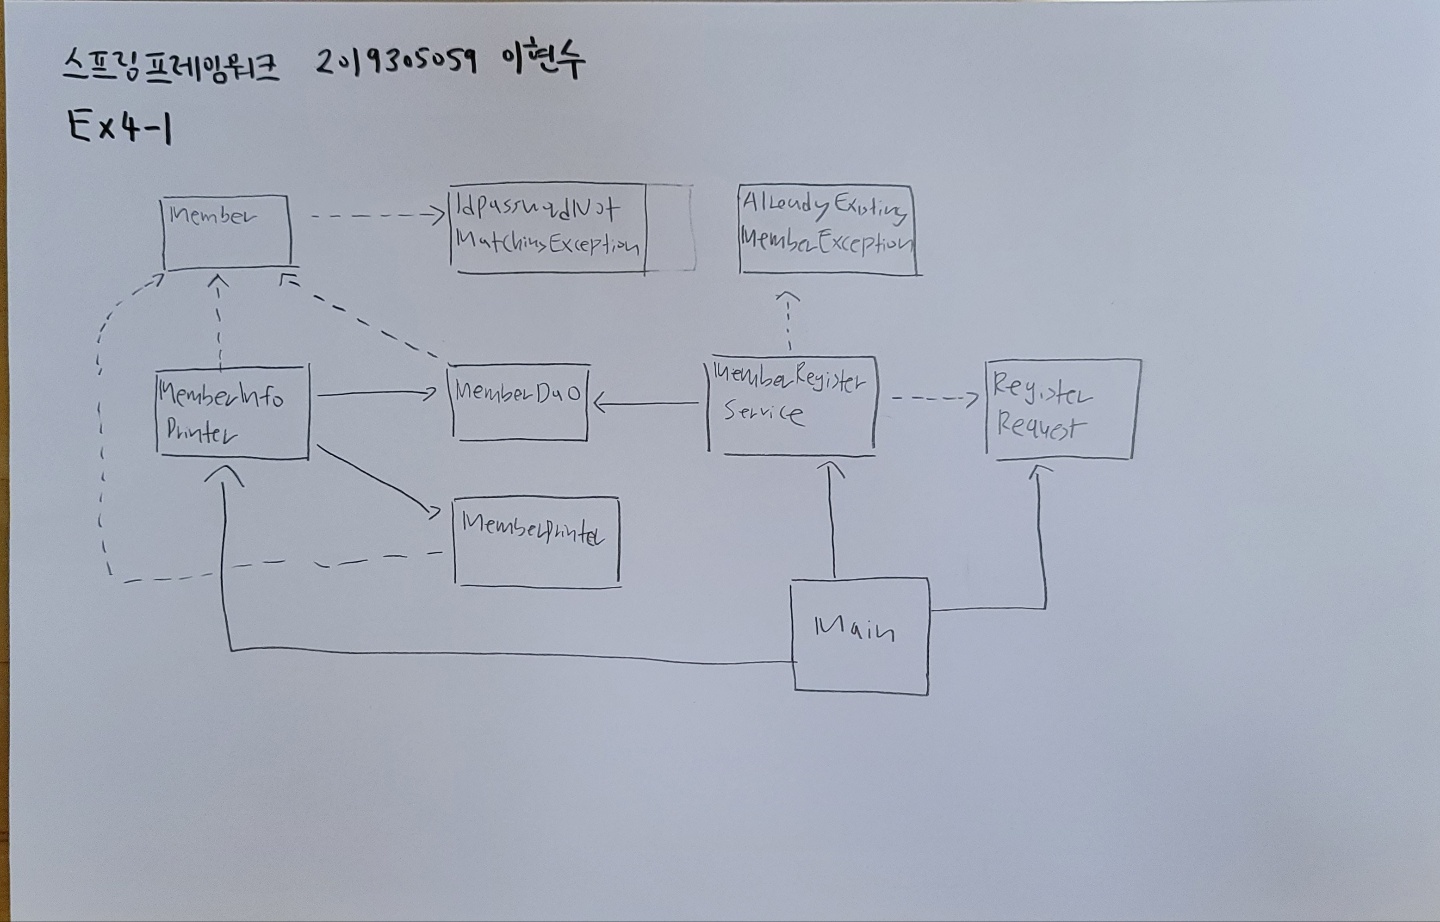 스프링프레임워크 2019305059 이현수
Ex4-1
Member
IdPasswordNot
MatchingException
AlreadyExisting
MemberException
MemberInfo
Printer
MemberDaO
MemberRegister
Service
Register
Request
MemberPrinter
Main